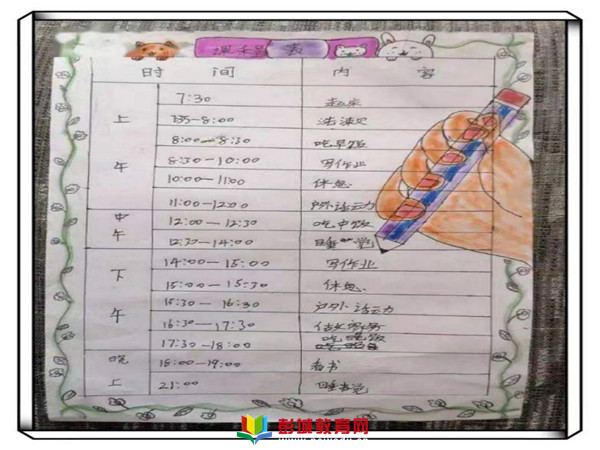 课程表
时 间 内 容
上午
7:30 起床
7:35-8:00 洗漱
8:00-8:30 吃早饭
8:30-10:00 写作业
10:00-11:00 休息
11:00-12:00 户外活动
中午
12:00-12:30 吃中饭
12:30-14:00 睡觉
下午
14:00-15:00 写作业
15:00-15:30 休息
15:30-16:30 户外活动
16:30-17:30 做家务
17:30-18:00 吃晚饭
晚上
18:00-19:00 看书
21:00 睡觉
彭城教育网